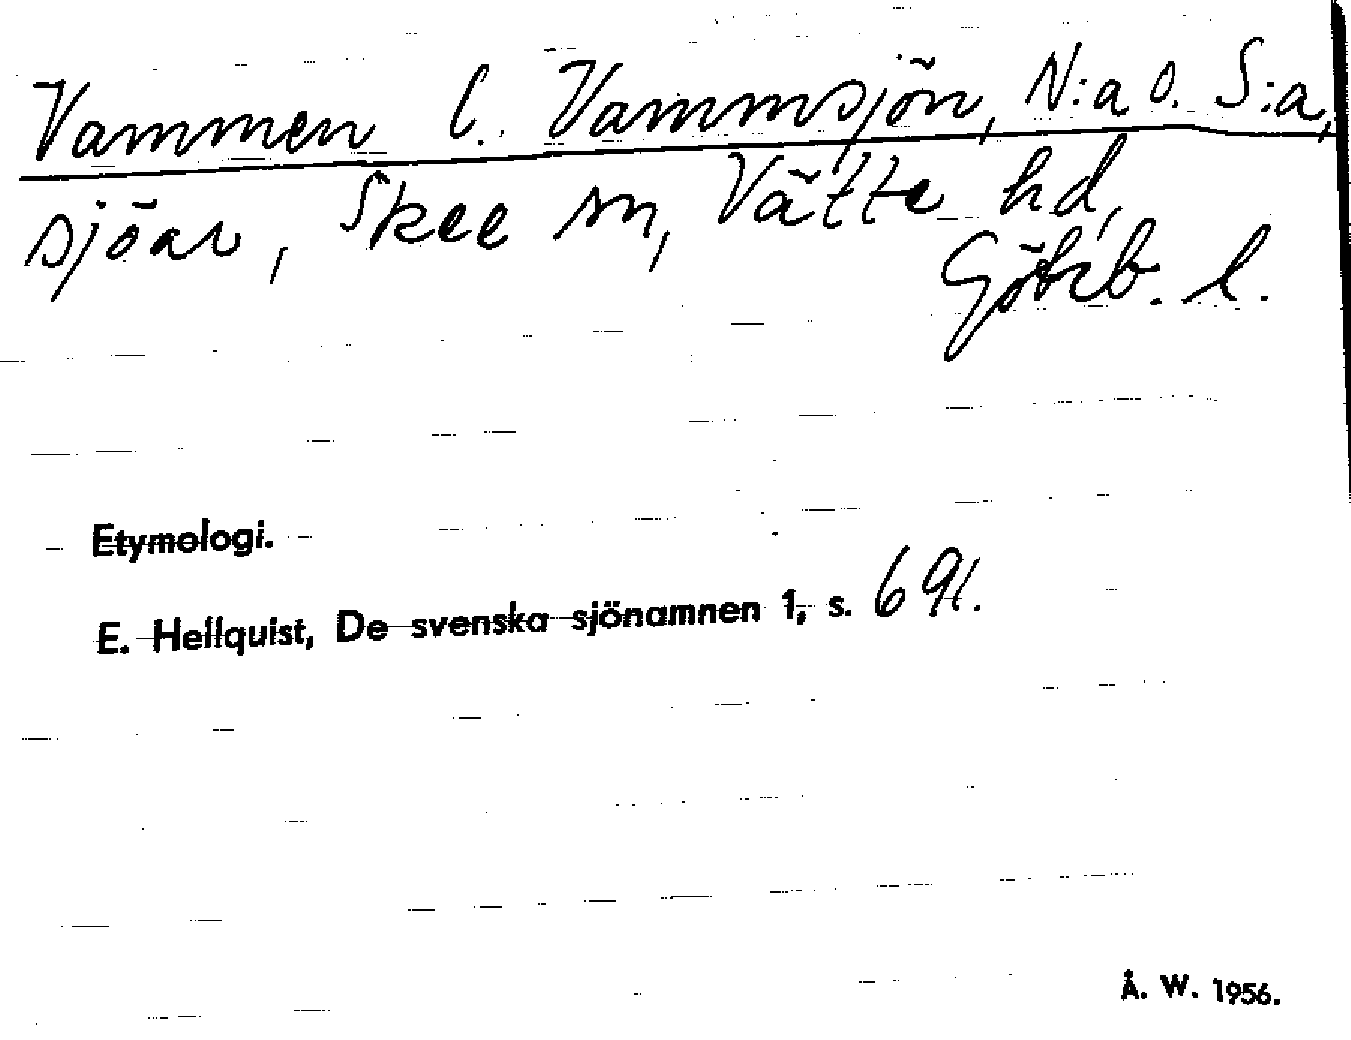 Vammen l. Vammsjön, N:a o. S:a,
sjöar, Skee sn, Vätte hd,
Götèb. l.
Etymologi.
E. Hellquist, De svenska sjönamnen 1, s. 691.
Å. W. 1956.